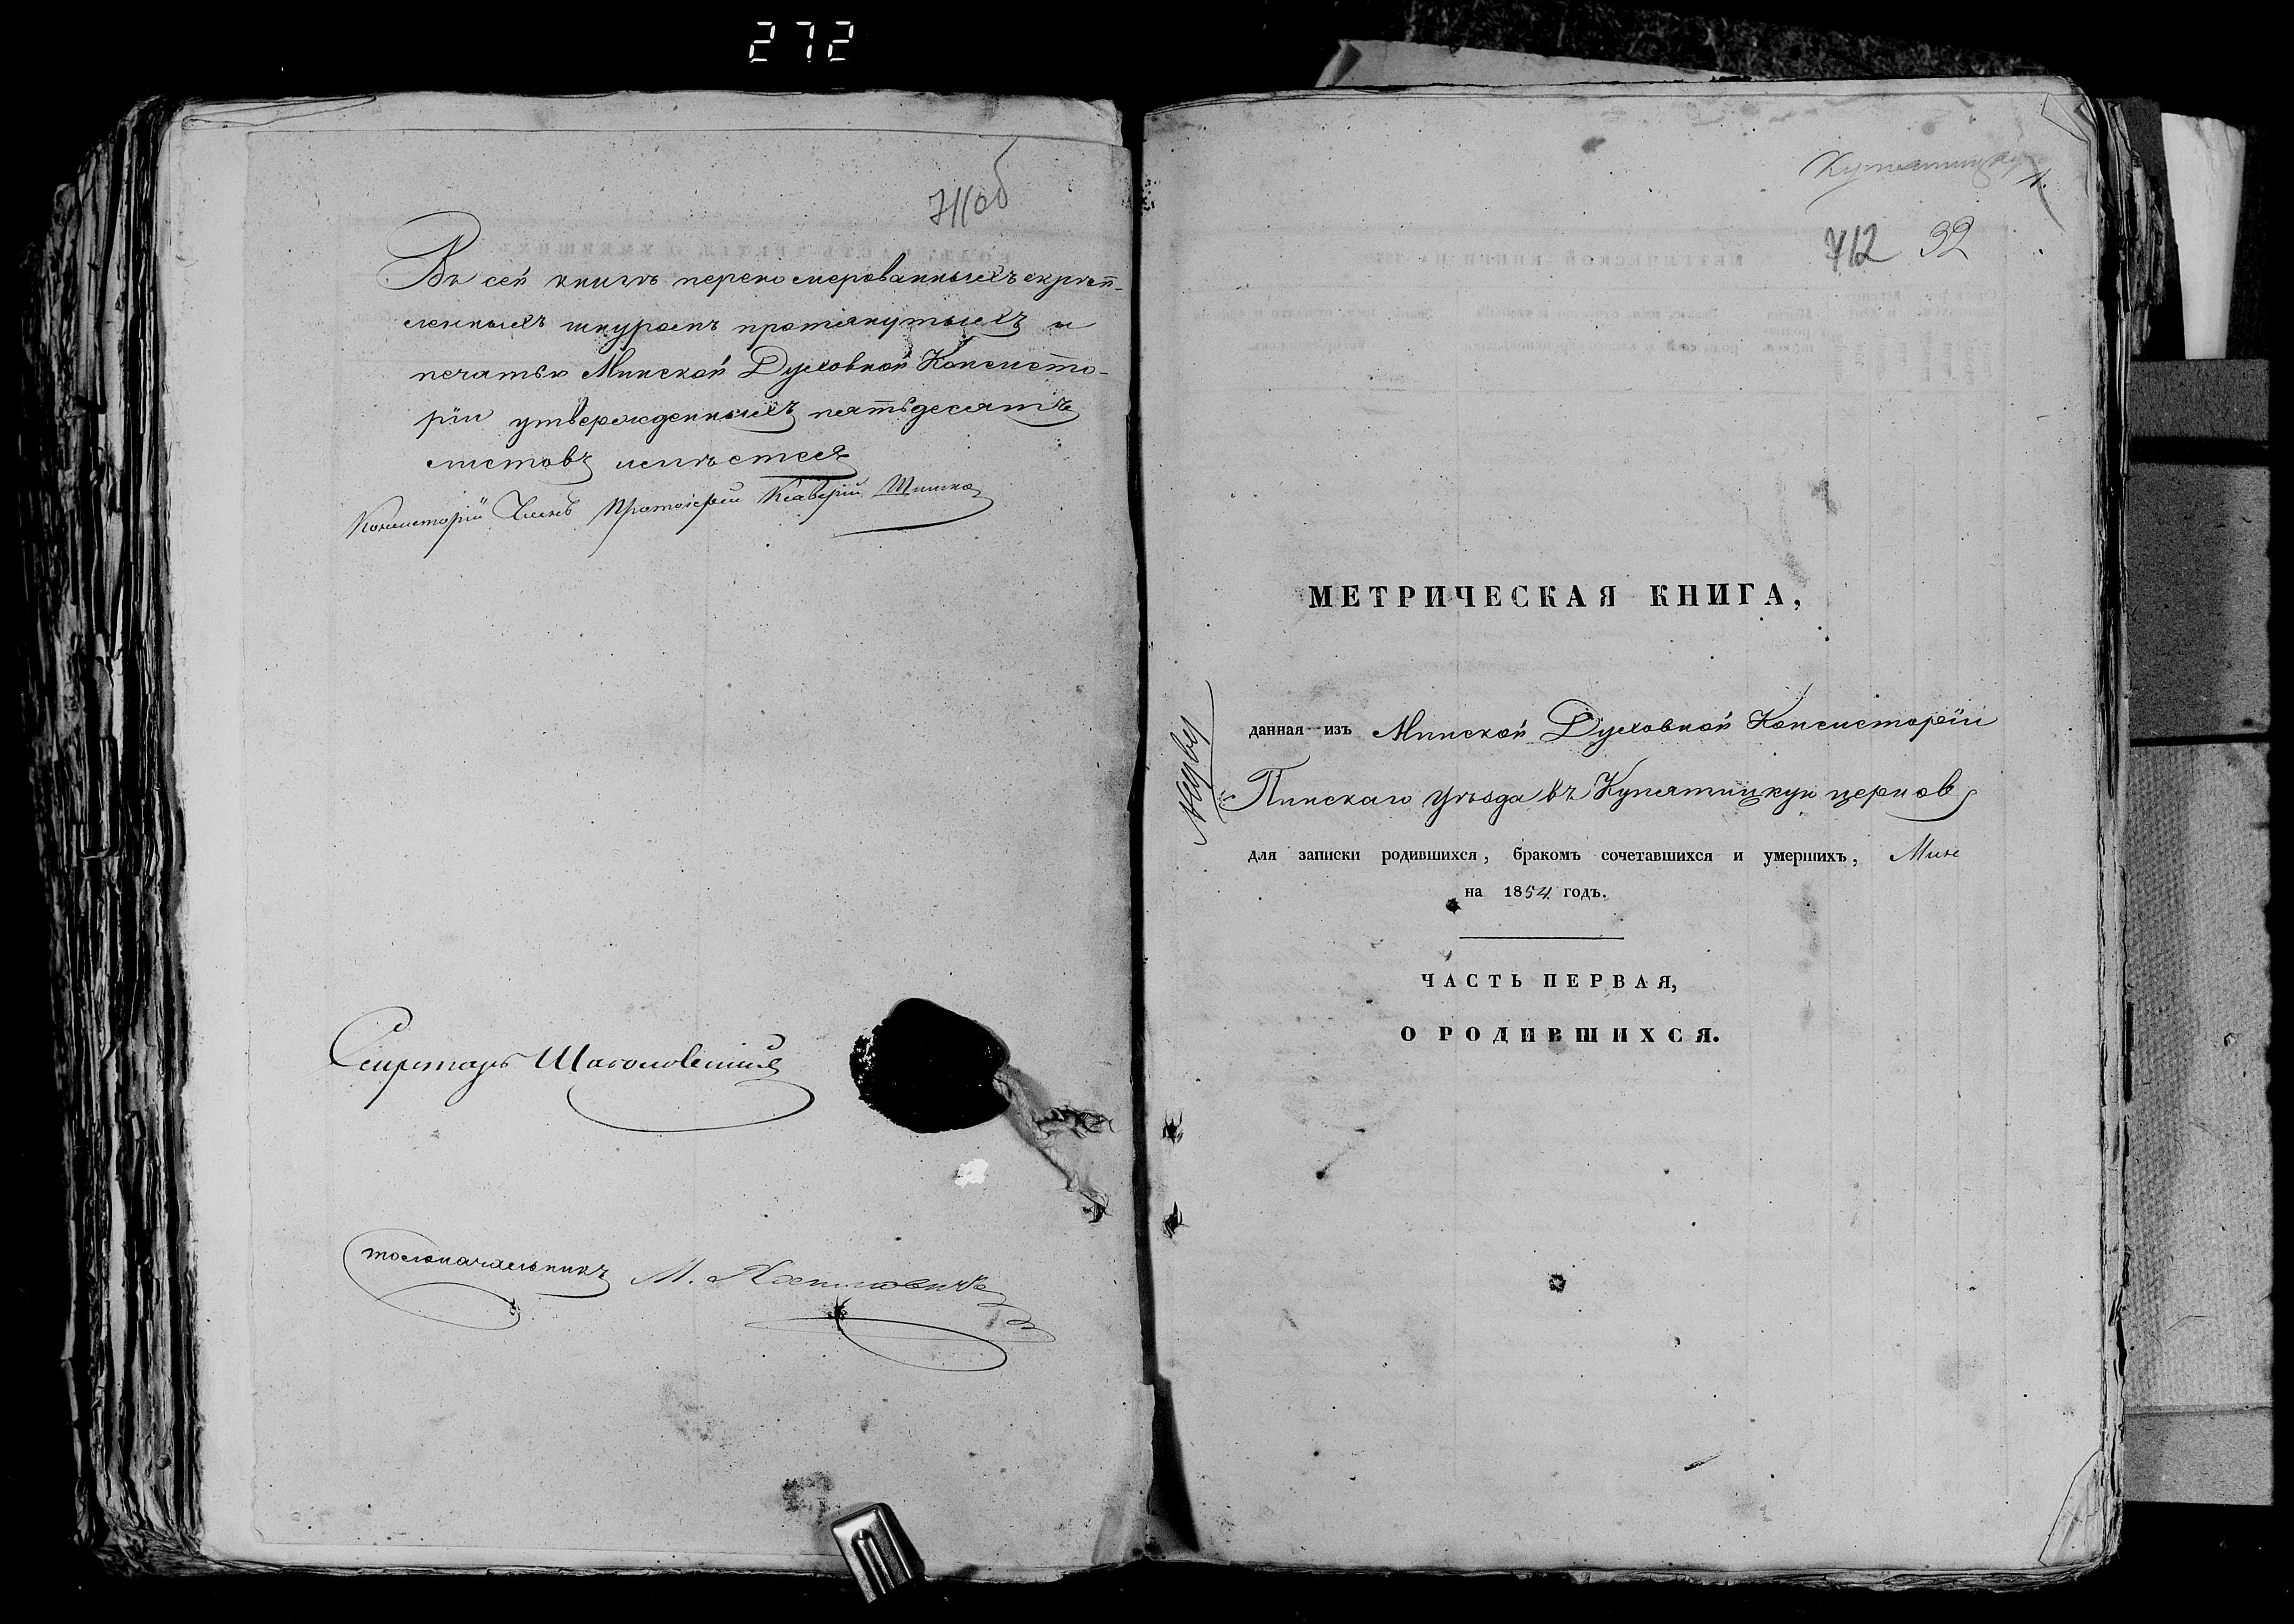 272
711об
Въ сей книгѣ переномерованныхъ скрѣп-
ленныхъ шнуромъ протянутыхъ и
печатью Минской Духовной Консисто-
рiи утвержденныхъ пятьдесятъ
листовъ имѣется
Консисторiи Членъ Протоіерей Ксаверiй Шишко
Секретарь
толоначальникъ М.
Купятицкую 1.
712 32
МЕТРИЧЕСКАЯ КНИГА,
данная изъ Минской Духовной Консисторiи
Пинскаго уѣзда въ Купятицкую церковь
для записки родившихся, бракомъ сочетавшихся и умершихъ,
на 1854 годъ.
ЧАСТЬ ПЕРВАЯ,
О РОДИВШИХСЯ.